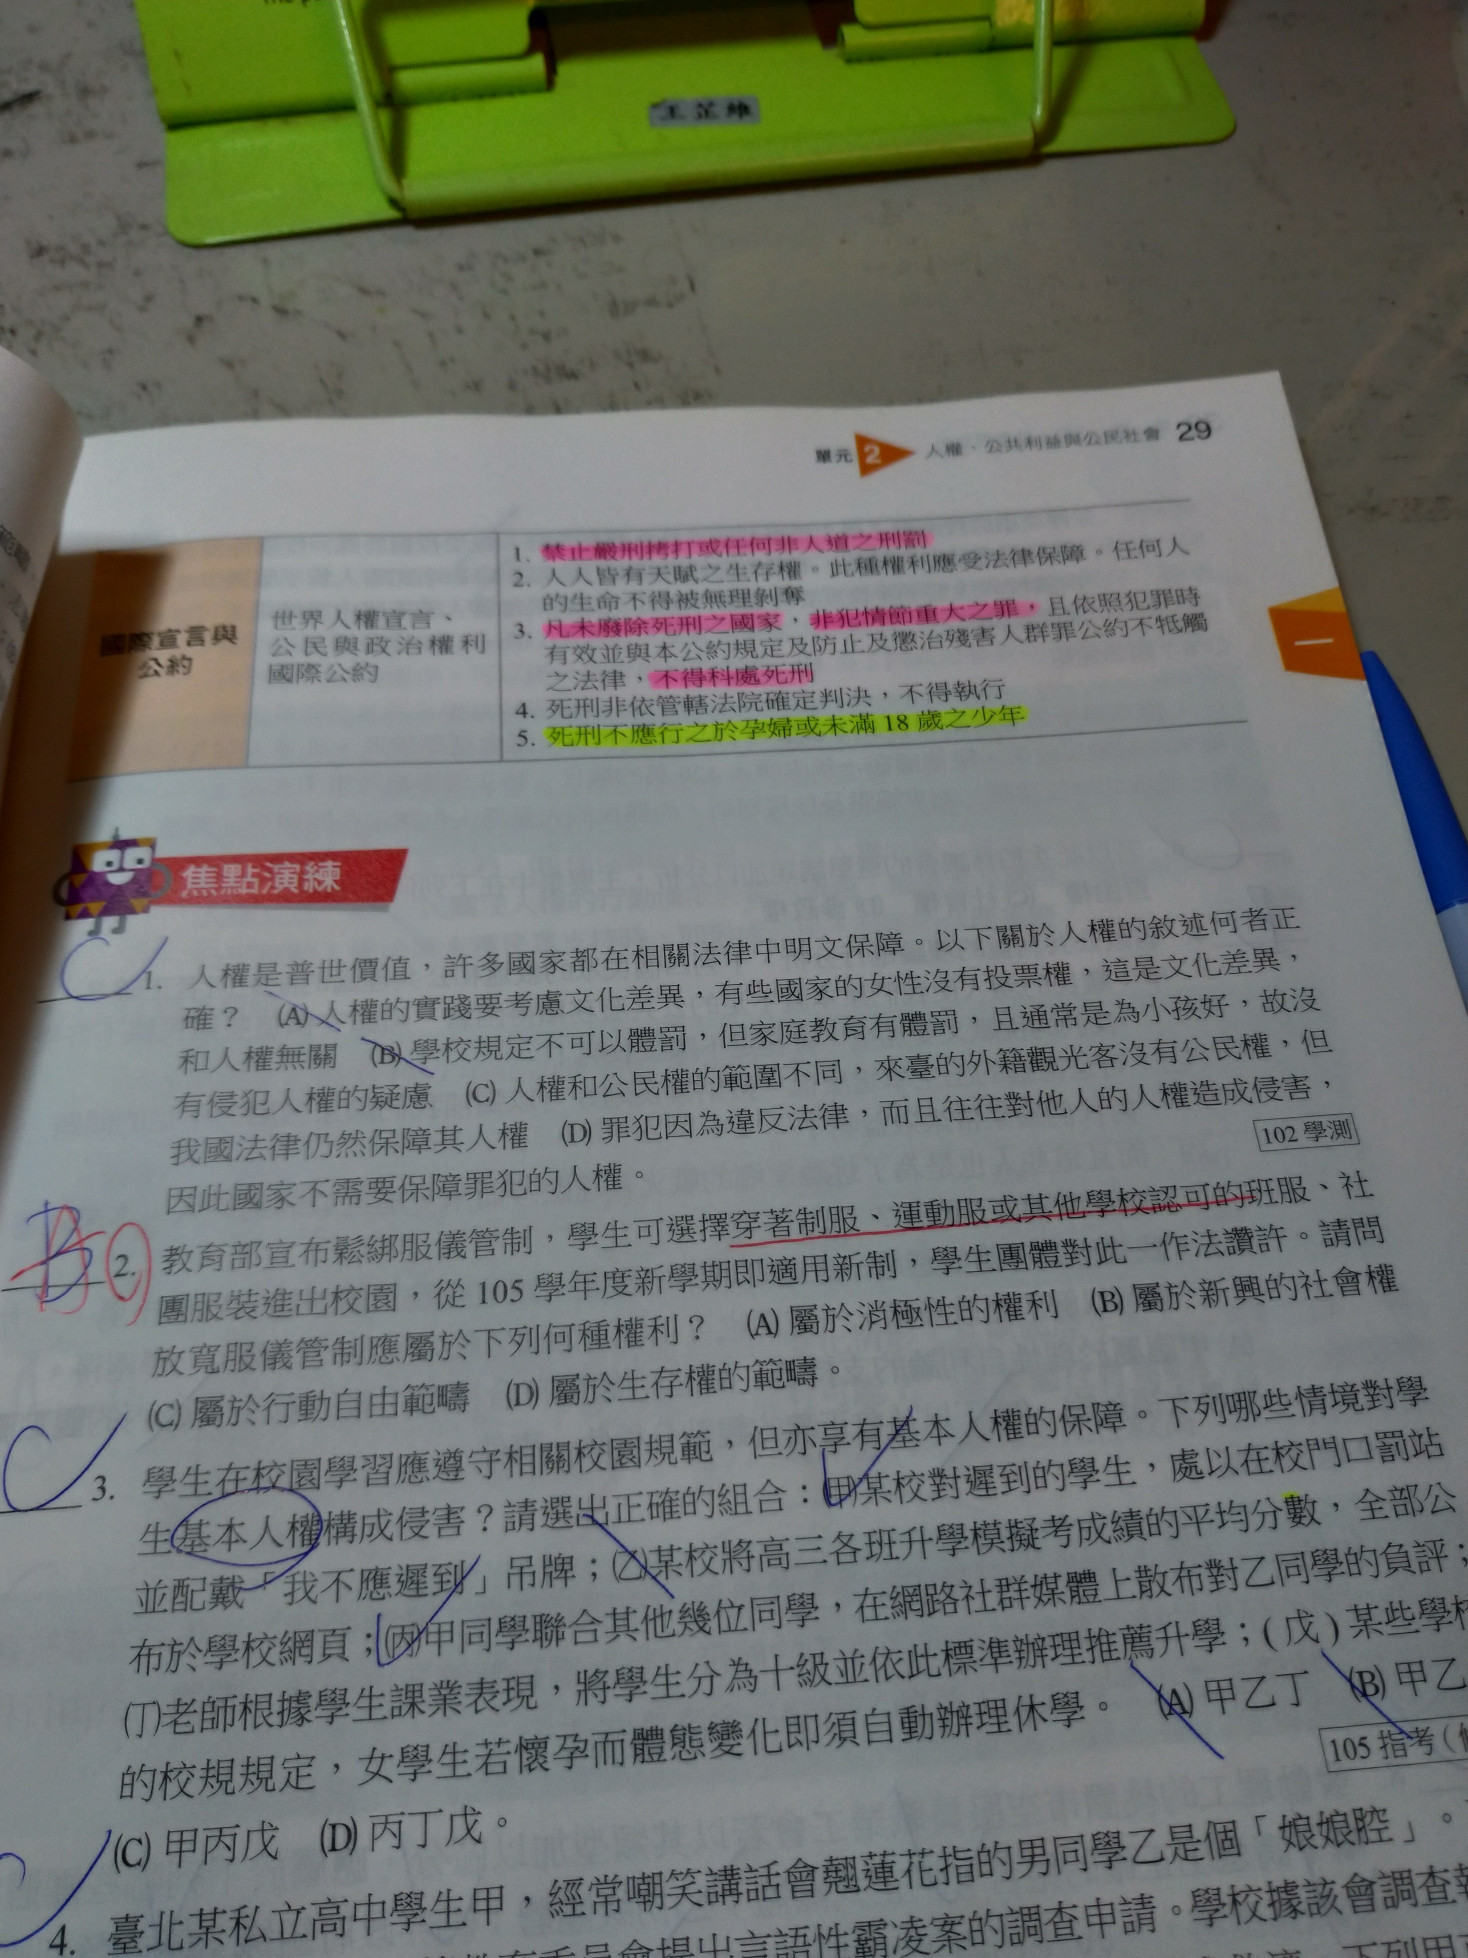 王芷維
單元 2 人權、公共利益與公民社會 29
國際宣言與
公約
世界人權宣言、
公民與政治權利
國際公約
1. 禁止嚴刑拷打或任何非人道之刑罰
2. 人人皆有天賦之生存權。此種權利應受法律保障。任何人
的生命不得被無理剝奪
3. 凡未廢除死刑之國家,非犯情節重大之罪,且依照犯罪時
有效並與本公約規定及防止及懲治殘害人群罪公約不牴觸
之法律,不得科處死刑
4. 死刑非依管轄法院確定判決,不得執行
5. 死刑不應行之於孕婦或未滿 18 歲之少年
一
焦點演練
C 1. 人權是普世價值,許多國家都在相關法律中明文保障。以下關於人權的敘述何者正
確? (A) 人權的實踐要考慮文化差異,有些國家的女性沒有投票權,這是文化差異,
和人權無關 (B) 學校規定不可以體罰,但家庭教育有體罰,且通常是為小孩好,故沒
有侵犯人權的疑慮 (C) 人權和公民權的範圍不同,來臺的外籍觀光客沒有公民權,但
我國法律仍然保障其人權 (D) 罪犯因為違反法律,而且往往對他人的人權造成侵害,
因此國家不需要保障罪犯的人權。 102 學測
B A 2. 教育部宣布鬆綁服儀管制,學生可選擇穿著制服、運動服或其他學校認可的班服、社
團服裝進出校園,從 105 學年度新學期即適用新制,學生團體對此一作法讚許。請問
放寬服儀管制應屬於下列何種權利? (A) 屬於消極性的權利 (B) 屬於新興的社會權
(C) 屬於行動自由範疇 (D) 屬於生存權的範疇。
C 3. 學生在校園學習應遵守相關校園規範,但亦享有基本人權的保障。下列哪些情境對學
生基本人權構成侵害?請選出正確的組合:(甲)某校對遲到的學生,處以在校門口罰站
並配戴「我不應遲到」吊牌;(乙)某校將高三各班升學模擬考成績的平均分數,全部公
布於學校網頁;(丙)甲同學聯合其他幾位同學,在網路社群媒體上散布對乙同學的負評;
(丁)老師根據學生課業表現,將學生分為十級並依此標準辦理推薦升學;(戊)某些學校
的校規規定,女學生若懷孕而體態變化即須自動辦理休學。 (A) 甲乙丁 (B) 甲乙
(C) 甲丙戊 (D) 丙丁戊。 105 指考
4. 臺北某私立高中學生甲,經常嘲笑講話會翹蓮花指的男同學乙是個「娘娘腔」。
委員會提出言語性霸凌案的調查申請。學校據該會調查